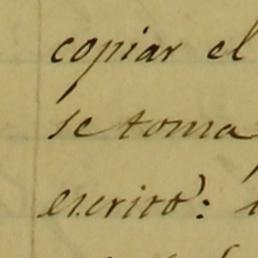 copiar el
se toma
escrito: